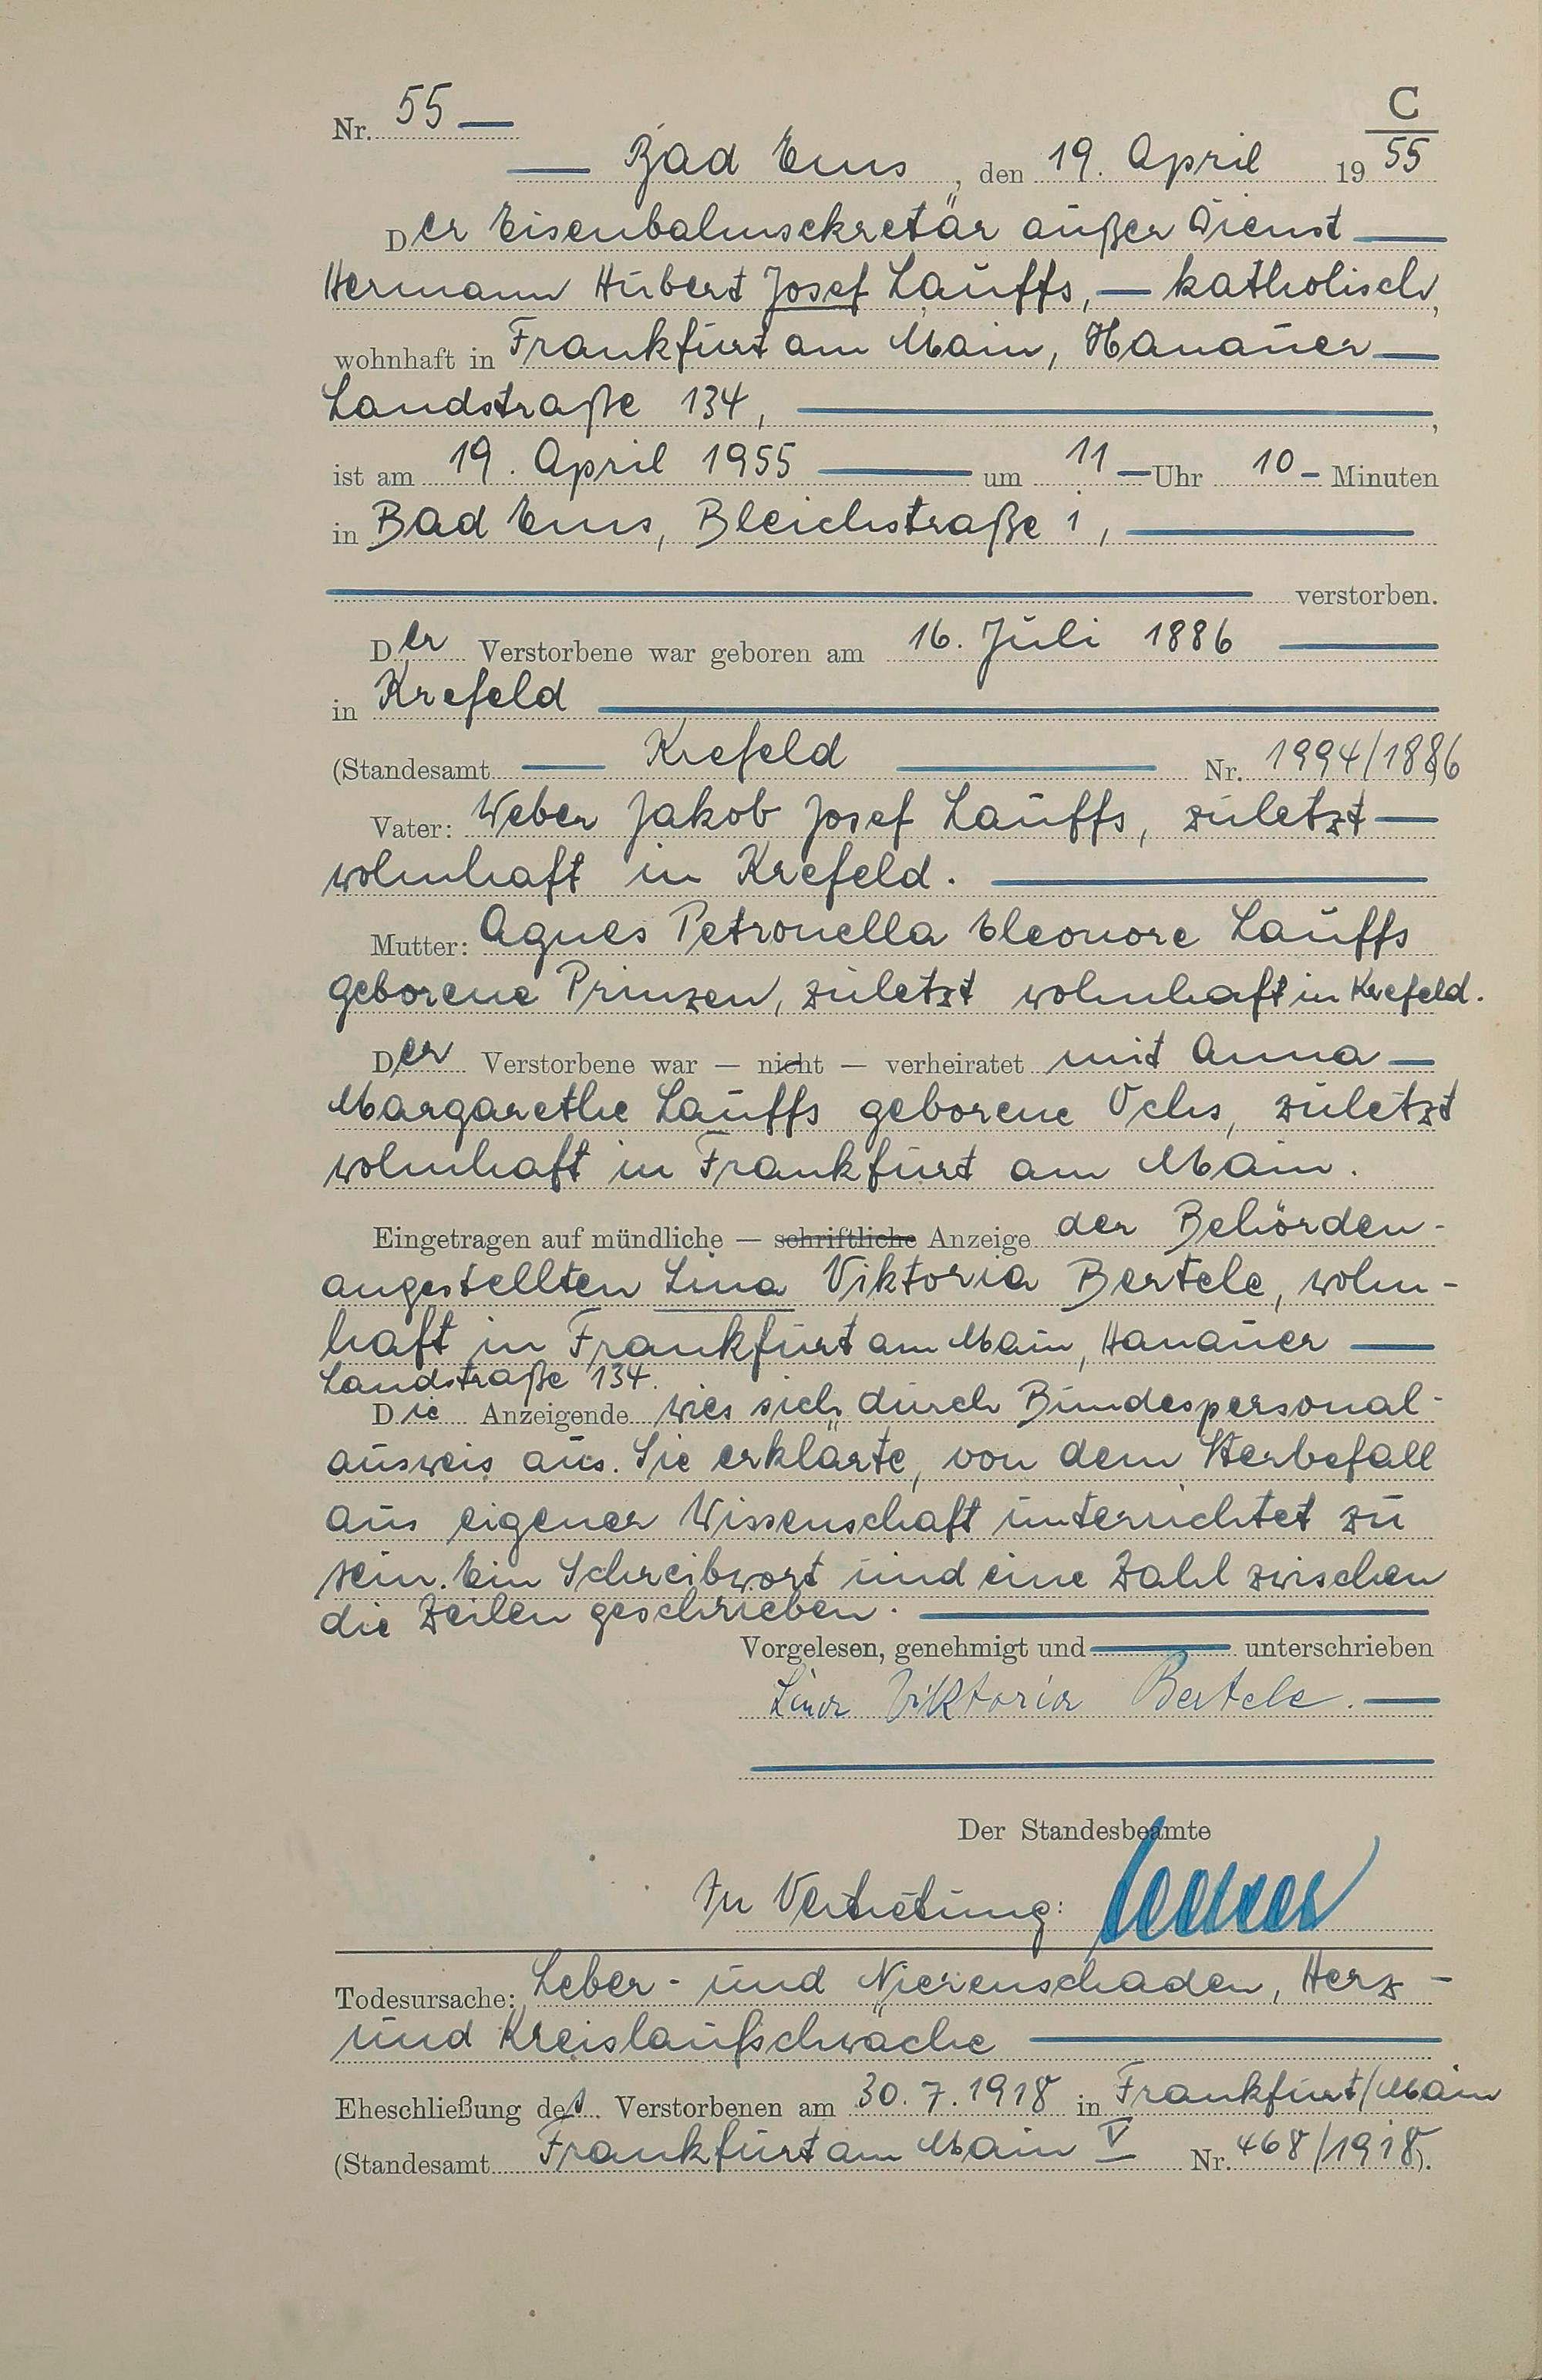 Nr. 55
C
Bad Ems, den 19. April 1955
Der Eisenbahnsekretär außer Dienst
Hermann Hubert Josef Lauffs, – katholisch,
wohnhaft in Frankfurt am Main, Hanauer
Landstraße 134,
ist am 19. April 1955 um 11 Uhr 10 Minuten
in Bad Ems, Bleichstraße 1,
verstorben.
Der Verstorbene war geboren am 16. Juli 1886
in Krefeld
(Standesamt Krefeld Nr. 1994/1886)
Vater: Weber Jakob Josef Lauffs, zuletzt
wohnhaft in Krefeld.
Mutter: Agnes Petronella Eleonore Lauffs
geborene Prinzen, zuletzt wohnhaft in Krefeld.
Der Verstorbene war — nicht — verheiratet mit Anna
Margarethe Lauffs geborene Ochs, zuletzt
wohnhaft in Frankfurt am Main.
Eingetragen auf mündliche — schriftliche Anzeige der Behörden-
angestellten Lina Viktoria Bertele, wohn-
haft in Frankfurt am Main, Hanauer
Landstraße 134.
Die Anzeigende wies sich durch Bundespersonal-
ausweis aus. Sie erklärte, von dem Sterbefall
aus eigener Wissenschaft unterrichtet zu
sein. Ein Schreibwort und eine Zahl zwischen
die Zeilen geschrieben.
Vorgelesen, genehmigt und unterschrieben
Lina Viktoria Bertele.
Der Standesbeamte
In Vertretung:
Todesursache: Leber- und Nierenschaden, Herz-
und Kreislaufschwäche
Eheschließung des Verstorbenen am 30.7.1918 in Frankfurt/Main
(Standesamt Frankfurt am Main V Nr. 468/1918).